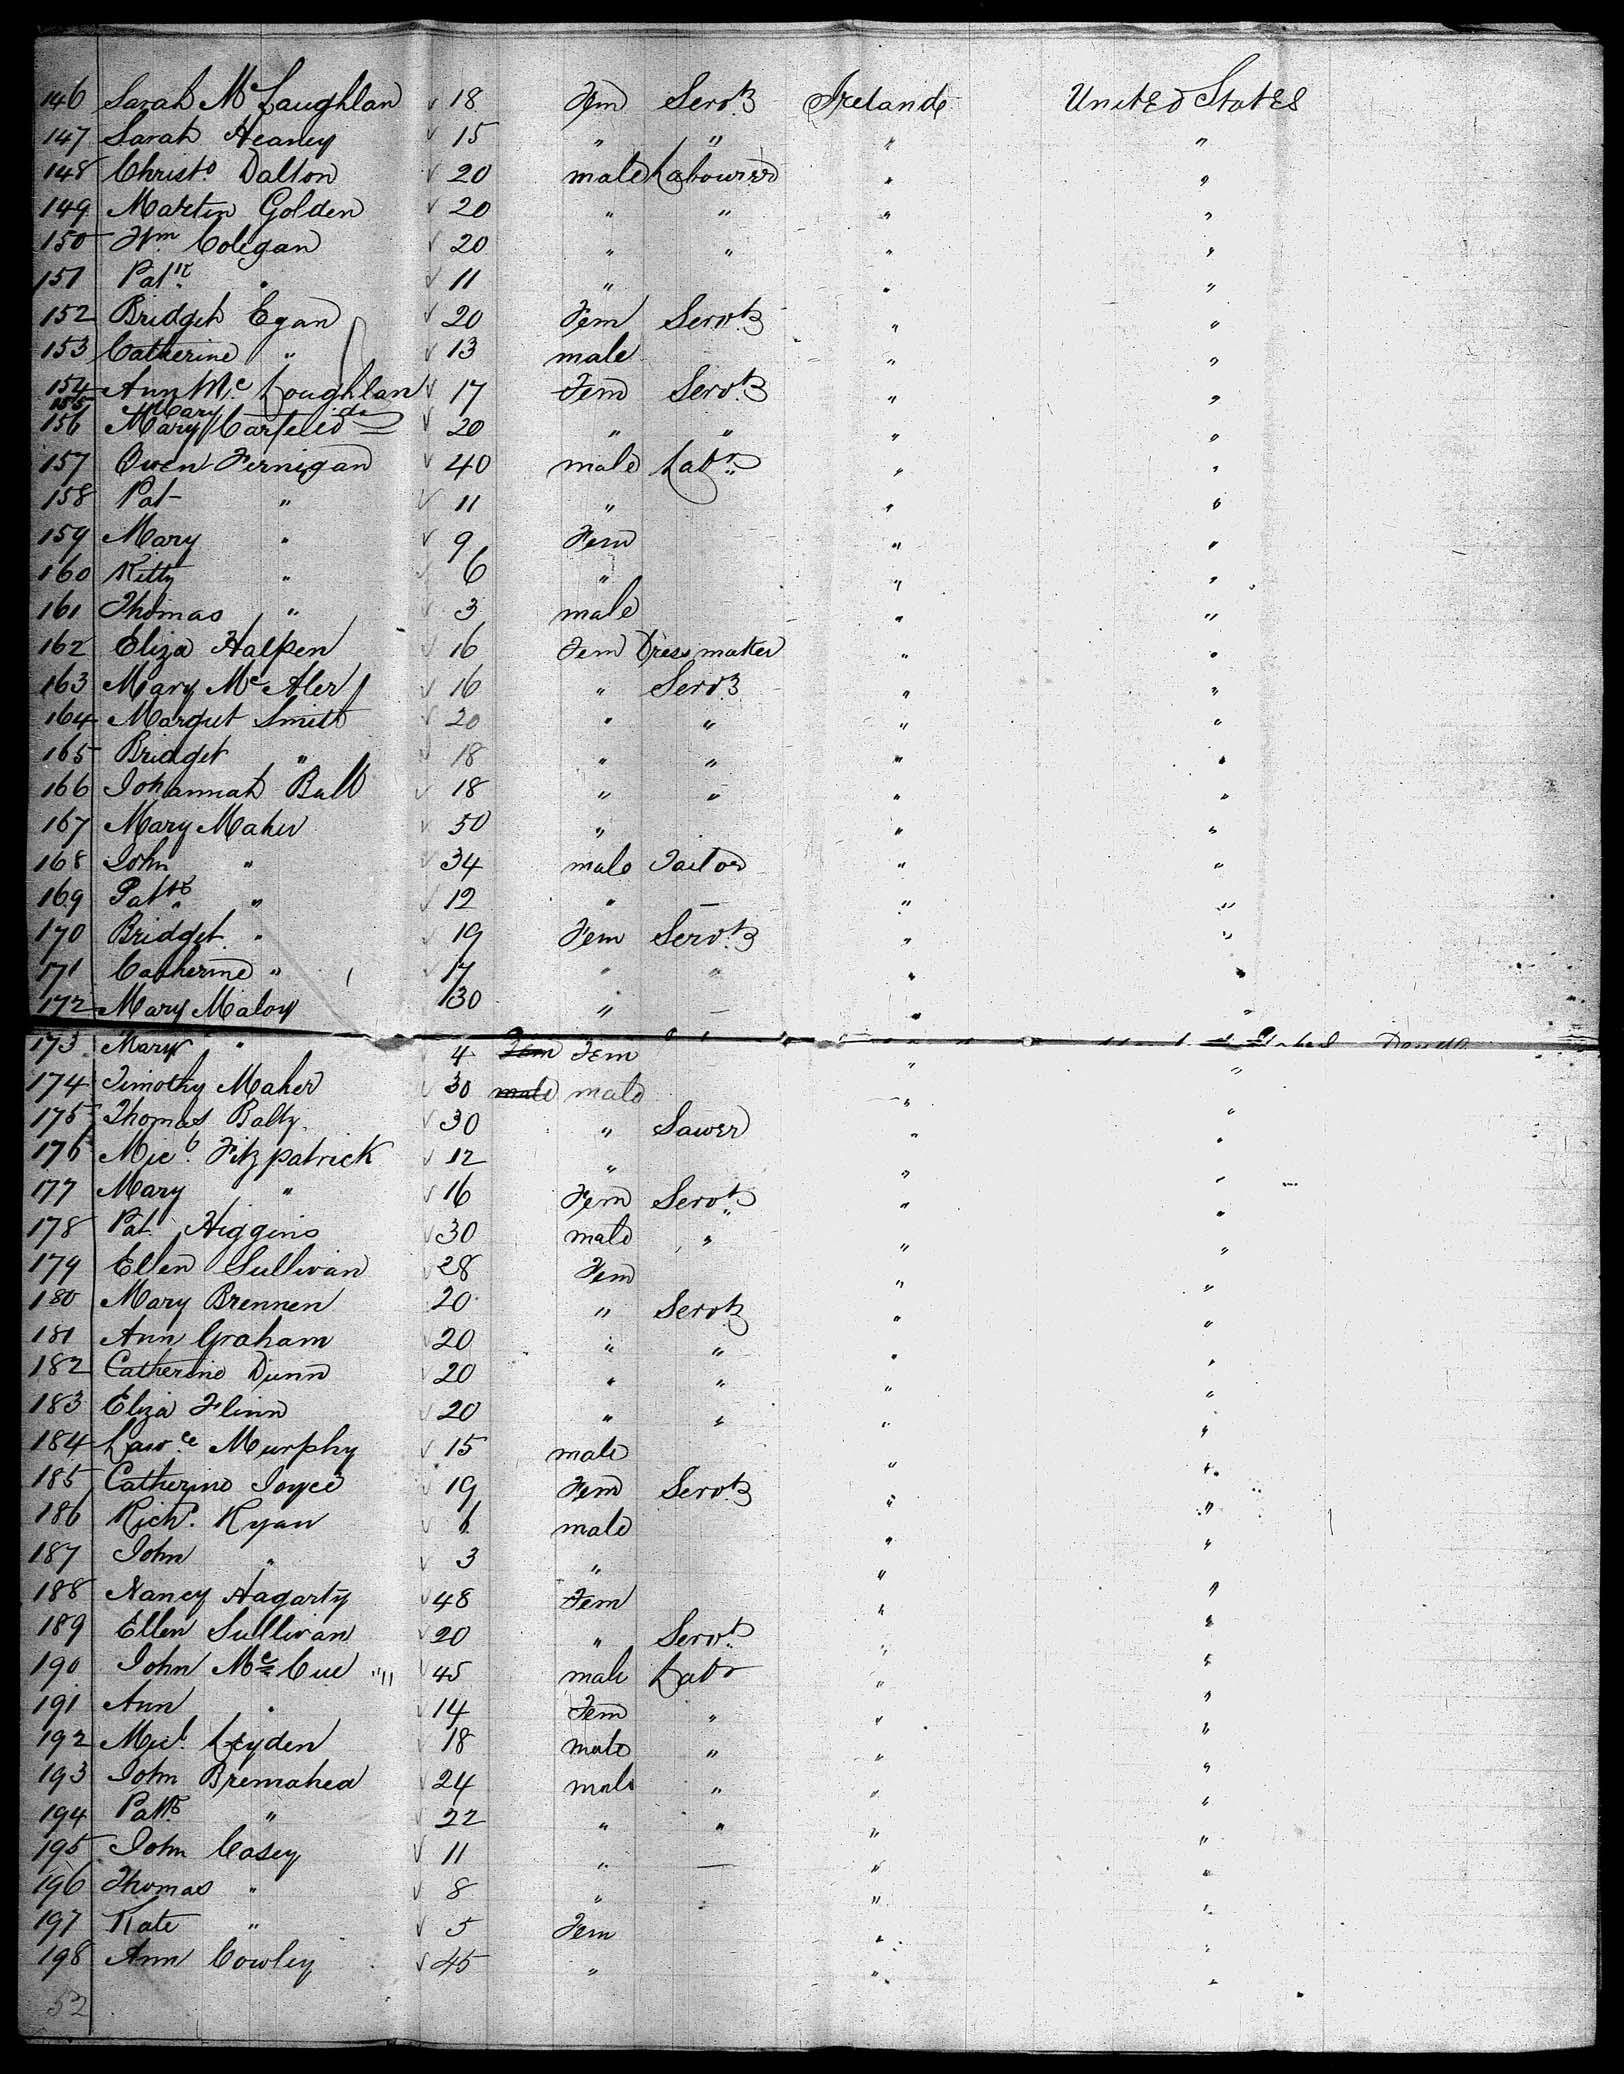 146 Sarah McLaughlan 18 Fem Servt Ireland United States
147 Sarah Heaney 15 " " " "
148 Christo. Dalton 20 male Labourer " "
149 Martin Golden 20 " " " "
150 Wm Colegan 20 " " " "
151 Patk. " 11 " " "
152 Bridget Egan 20 Fem Servt " "
153 Catherine " 13 male " "
154 Ann Mc Loughlan 17 Fem Servt " "
155 Mary do
156 Mary 20 " " " "
157 Owen Fernigan 40 male Labr " "
158 Pat " 11 " " "
159 Mary " 9 Fem " "
160 Kitty " 6 " " "
161 Thomas " 3 male " "
162 Eliza Halpen 16 Fem Dressmaker " "
163 Mary McAler 16 " Servt " "
164 Margret Smith 20 " " " "
165 Bridget " 18 " " " "
166 Johannah Ball 18 " " " "
167 Mary Maher 50 " " "
168 John " 34 male Tailor " "
169 Patk " 12 " — " "
170 Bridget " 19 Fem Servt " "
171 Catherine " 17 " " " "
172 Mary Maloy 30 " — " "
173 Mary " 4 Fem Fem " "
174 Timothy Maher 30 male male " "
175 Thomas Balty 30 " Sawer " "
176 Micl. Fitzpatrick 12 " " "
177 Mary " 16 Fem Servt " "
178 Pat. Higgins 30 male " " "
179 Ellen Sullivan 28 Fem " "
180 Mary Brennen 20 " Servt " "
181 Ann Graham 20 " " " "
182 Catherine Dunn 20 " " " "
183 Eliza Flinn 20 " " " "
184 Lawce Murphy 15 male " "
185 Catherine Joyce 19 Fem Servt " "
186 Richd. Ryan 6 male " "
187 John " 3 " " "
188 Nancy Hagarty 48 Fem " "
189 Ellen Sullivan 20 " Servt " "
190 John McCue 45 male Labr " "
191 Ann " 14 Fem " " "
192 Micl. Leyden 18 male " " "
193 John Bremahea 24 male " " "
194 Patk " 22 " " " "
195 John Casey 11 " — " "
196 Thomas " 8 " " "
197 Kate " 5 Fem " "
198 Ann Cowley 45 " " "
52